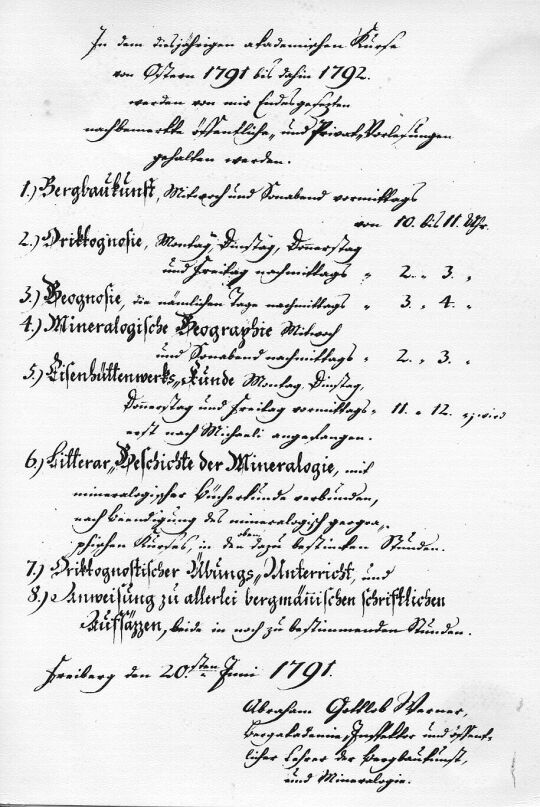 In dem diesjährigen akademischen Kurse
von Ostern 1791 bis dahin 1792.
werden von mir Endesgesezten
nachbemerkte öffentliche, und Privat„Vorlesungen
gehalten werden.
1.) Bergbaukunst, Mitwoch und Sonabend vormittags
von 10. bis 11. Uhr.
2.) Oriktognosie, Montag, Dinstag, Donnerstag
und Freitag nachmittags „ 2. „ 3. „
3.) Geognosie, die nämlichen Tage nachmittags „ 3. „ 4. „
4.) Mineralogische Geographie Mitwoch
und Sonabend nachmittags „ 2. „ 3. „
5.) Eisenhüttenwerks„Kunde Montag, Dinstag,
Donnerstag und Freitag vormittags „ 11. „ 12. „ wird
erst nach Michaeli angefangen.
6.) Litterar„Geschichte der Mineralogie, mit
mineralogischer Bücherkunde verbunden,
nach Beendigung des mineralogisch geogra„
phischen Kurses, in den eben dazu bestimten Stunden.
7.) Oriktognostischer Übungs„Unterricht, und
8.) Anweisung zu allerlei bergmännischen schriftlichen
Aufsäzzen, beide in noch zu bestimmenden Stunden.
Freiberg den 20.sten Juni 1791.
Abraham Gottlob Werner,
Bergakademie„Inspektor und öffent„
licher Lehrer der Bergbaukunst,
und Mineralogie.